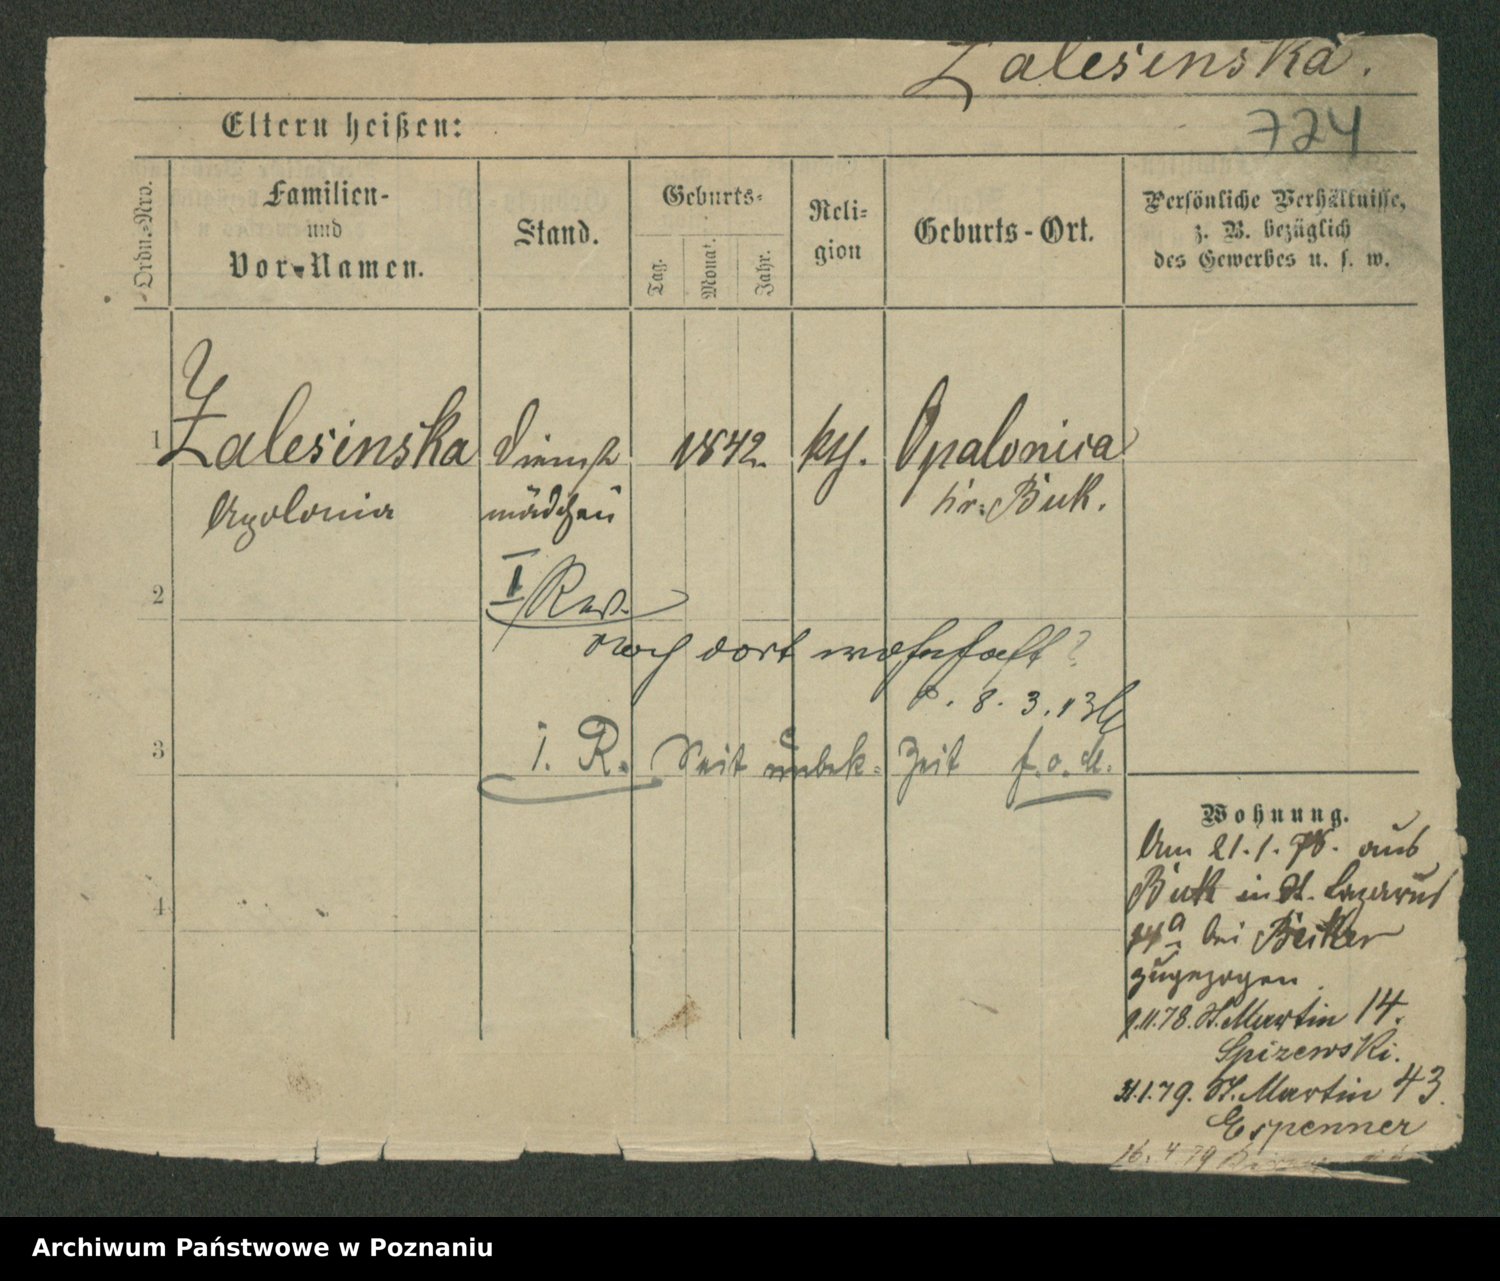 Zalesinska.
724
Eltern heißen:
Ordn.-Nro.
Familien-
und
Vor-Namen.
Stand.
Geburts-
Tag.
Monat.
Jahr.
Reli-
gion
Geburts-Ort.
Persönliche Verhältnisse,
z. B. bezüglich
des Gewerbes u. s. w.
1 Zalesinska Dienst 1842. kth. Opalonica
Apolonia mädchen kr. Buk.
I Rev.
2
noch dort wohnhaft?
P. 8. 3.
3 I. R. Seit unbek. Zeit f. o. M.
4
Wohnung.
Am 21.1.78. aus
Buk in St. Lazarus
bei Beiker
zugezogen
9.11.78. St. Martin 14.
Spizewski.
31.1.79. St. Martin 43.
Espenner
16. 4 79
Archiwum Państwowe w Poznaniu